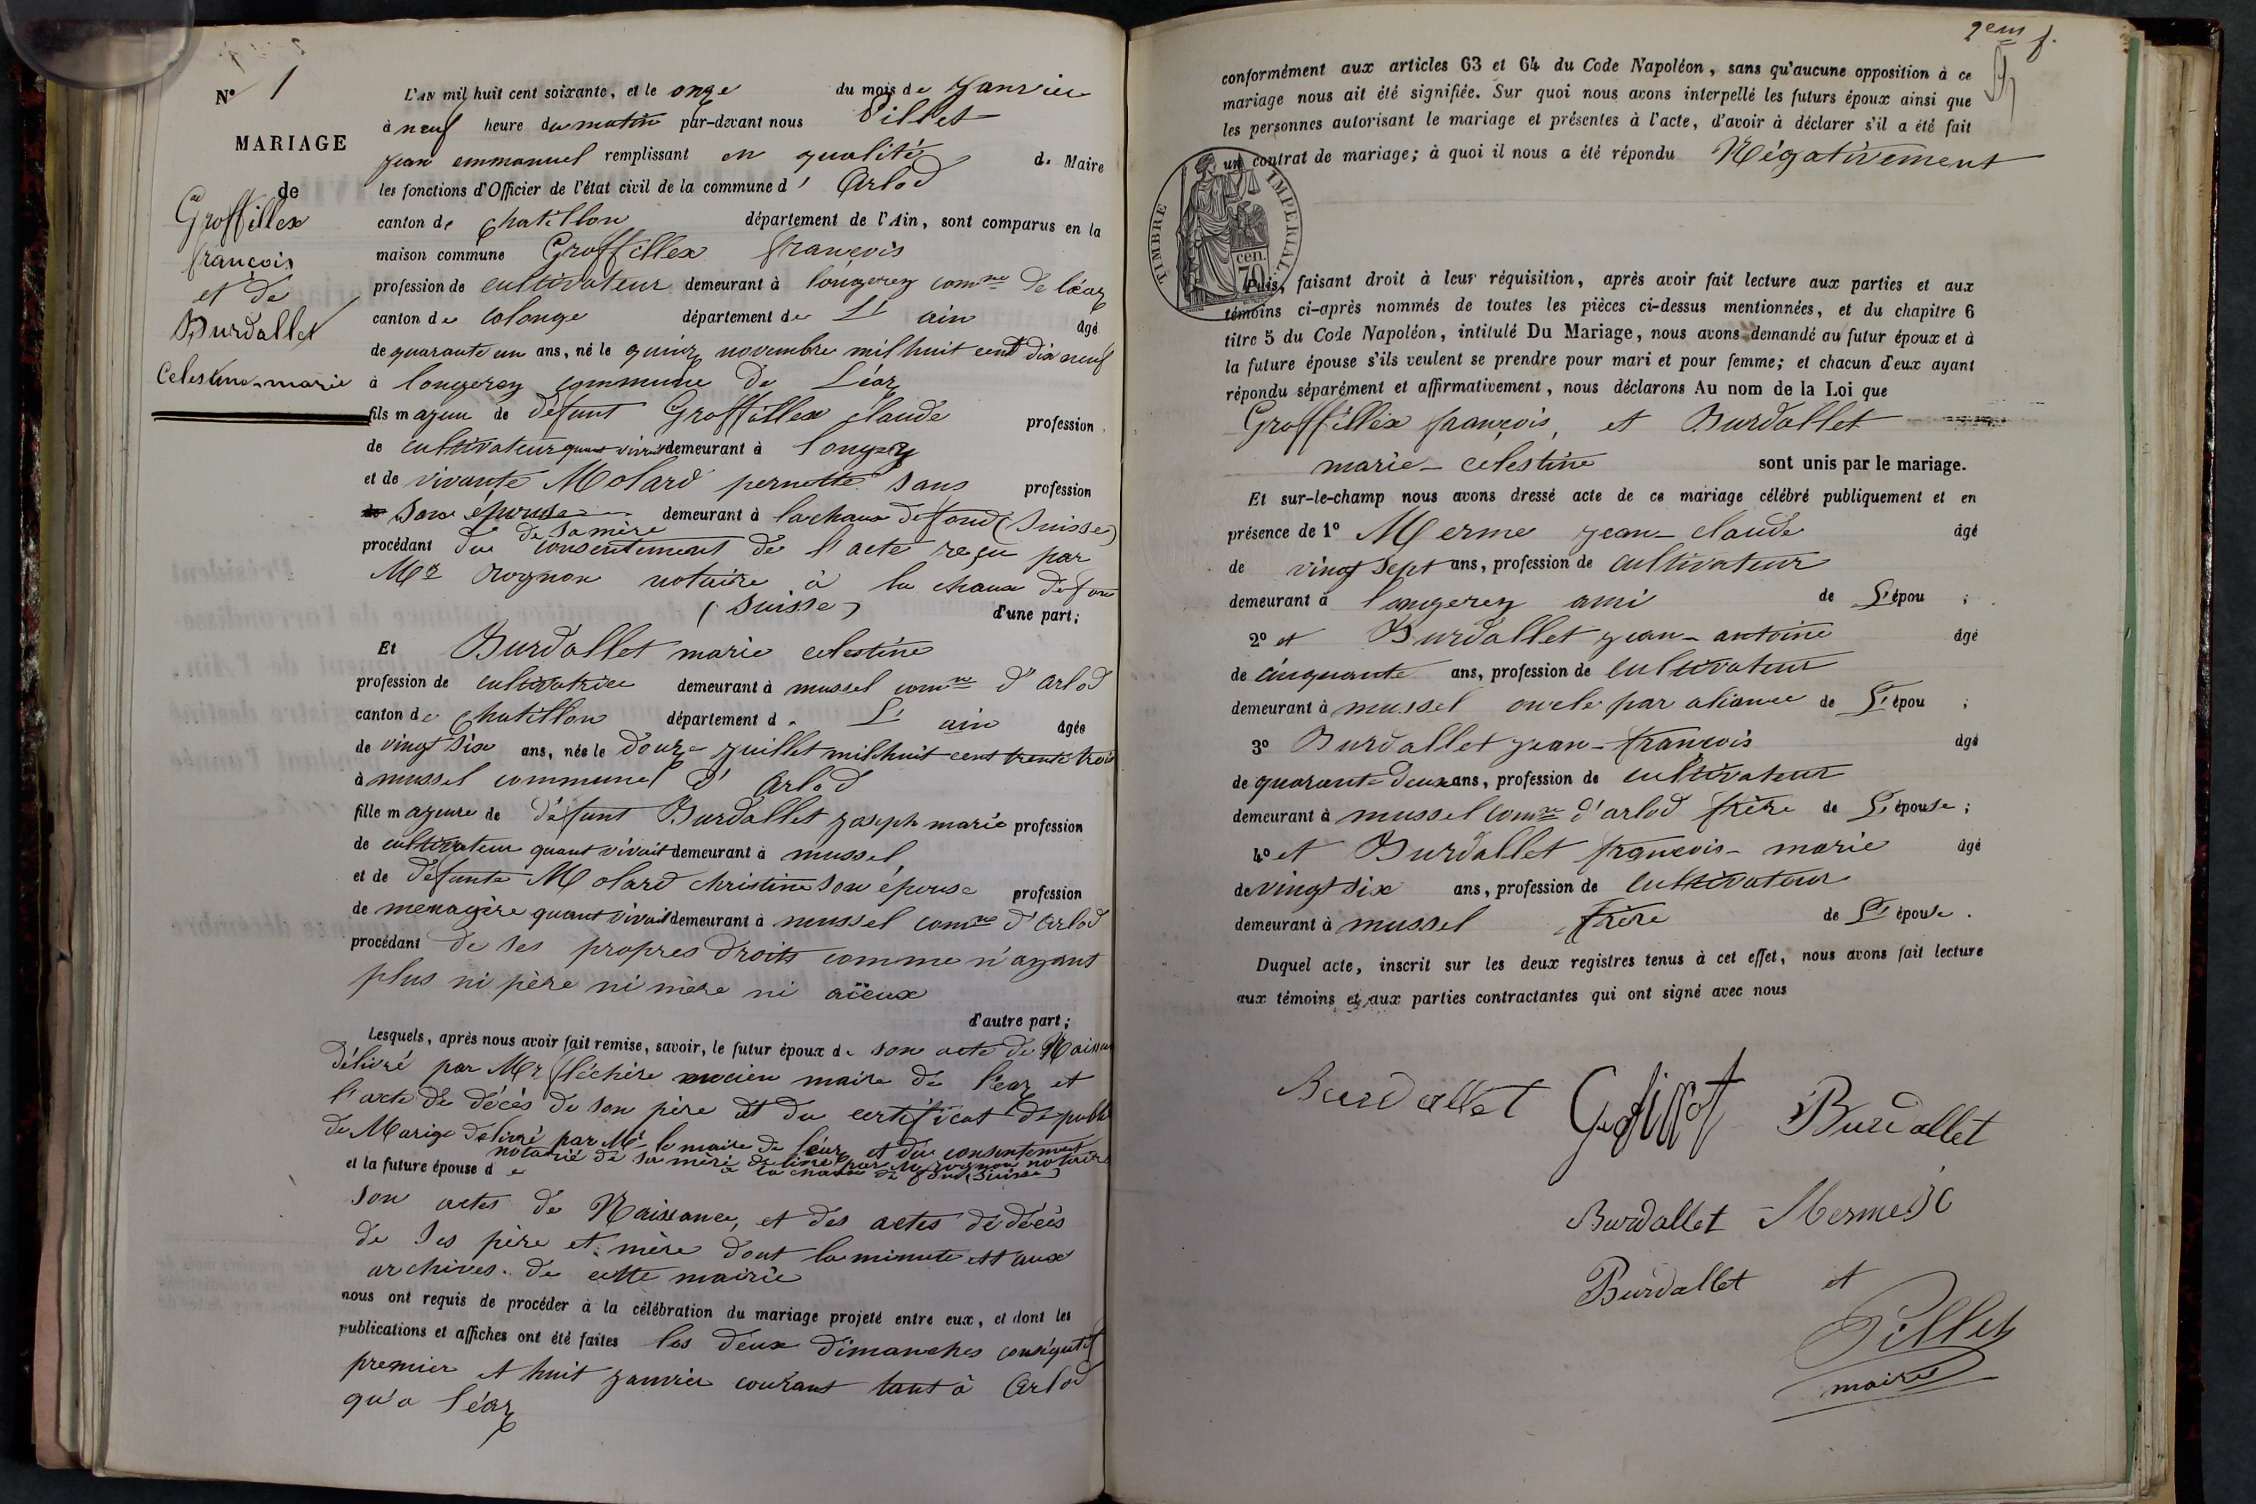 N° 1
MARIAGE
de
Groffillex
françois
et de
Burdallet
Celestine-marie
L'AN mil huit cent soixante, et le onze du mois de Janvier
à neuf heure du matin par-devant nous Pillet
jean emmanuel remplissant en qualité de Maire
les fonctions d'Officier de l'état civil de la commune d' Arlod
canton de chatillon département de l'Ain, sont comparus en la
maison commune Groffillex françois
profession de cultivateur demeurant à longerey comne de léaz
canton de Colonge département de L' ain âgé
de quarante un ans, né le quinze novembre mil huit cent dix neuf
à longerey commune de Léaz
fils majeur de défunt Groffillex claude profession
de cultivateur quant vivait demeurant à longery
et de vivante Molard pernette sans profession
son épouse demeurant à lachaux defond (Suisse)
de sa mère
procédant du consentement de l'acte reçu par
Mr rognon notaire à la chaux defon
(Suisse) d'une part;
Et Burdallet marie celestine
profession de cultivatrice demeurant à mussel comne d'arlod
canton de chatillon département de L' ain âgée
de vingt six ans, née le douze juillet mil huit cent trente trois
à mussel commune d' Arlod
fille majeure de défunt Burdallet joseph marie profession
de cultivateur quant vivait demeurant à mussel
et de défunte Molard christine son épouse profession
de menagère quant vivait demeurant à mussel comne d'Arlod
procédant de ses propres droits comme n'ayant
plus ni père ni mère ni aïeux
d'autre part;
Lesquels, après nous avoir fait remise, savoir, le futur époux de son acte de Naissan
délivré par Mr fléchère ancien maire de léaz et
l'acte de décès de son père et du certificat de publi
de Marige délivré par Mr le maire de léaz et du consentement
notarié de sa mère délivré par Mr rognon notaire
à la chaux de fond (Suisse)
et la future épouse de
son actes de Naissance, et des actes de décès
de ses père et mère dont la minute est aux
archives de cette mairie
nous ont requis de procéder à la célébration du mariage projeté entre eux, et dont les
publications et affiches ont été faites les deux dimanches conséqutif
premier et huit janvier courant tant à Arlod
qu'a léaz
2em f.
conformément aux articles 63 et 64 du Code Napoléon, sans qu'aucune opposition à ce
mariage nous ait été signifiée. Sur quoi nous avons interpellé les futurs époux ainsi que
les personnes autorisant le mariage et présentes à l'acte, d'avoir à déclarer s'il a été fait
un contrat de mariage; à quoi il nous a été répondu Négativement
TIMBRE IMPERIAL
70 cen.
Puis, faisant droit à leur réquisition, après avoir fait lecture aux parties et aux
témoins ci-après nommés de toutes les pièces ci-dessus mentionnées, et du chapitre 6
titre 5 du Code Napoléon, intitulé Du Mariage, nous avons demandé au futur époux et à
la future épouse s'ils veulent se prendre pour mari et pour femme; et chacun d'eux ayant
répondu séparément et affirmativement, nous déclarons Au nom de la Loi que
Groffillex françois, et Burdallet
marie-celestine sont unis par le mariage.
Et sur-le-champ nous avons dressé acte de ce mariage célébré publiquement et en
présence de 1° Merme jean-claude âgé
de vingt sept ans, profession de cultivateur
demeurant à longerey ami de L'épou ;
2° et Burdallet jean-antoine âgé
de cinquante ans, profession de cultivateur
demeurant à mussel oncle par aliance de L'épou ;
3° Burdallet jean-françois âgé
de quarante deux ans, profession de cultivateur
demeurant à mussel comne d'arlod frère de L'épouse ;
4° et Burdallet françois-marie âgé
de vingt six ans, profession de cultivateur
demeurant à mussel frère de L'épouse .
Duquel acte, inscrit sur les deux registres tenus à cet effet, nous avons fait lecture
aux témoins et aux parties contractantes qui ont signé avec nous
Burdallet Burdallet
Burdallet Merme JC
Burdallet et
Pillet
maire